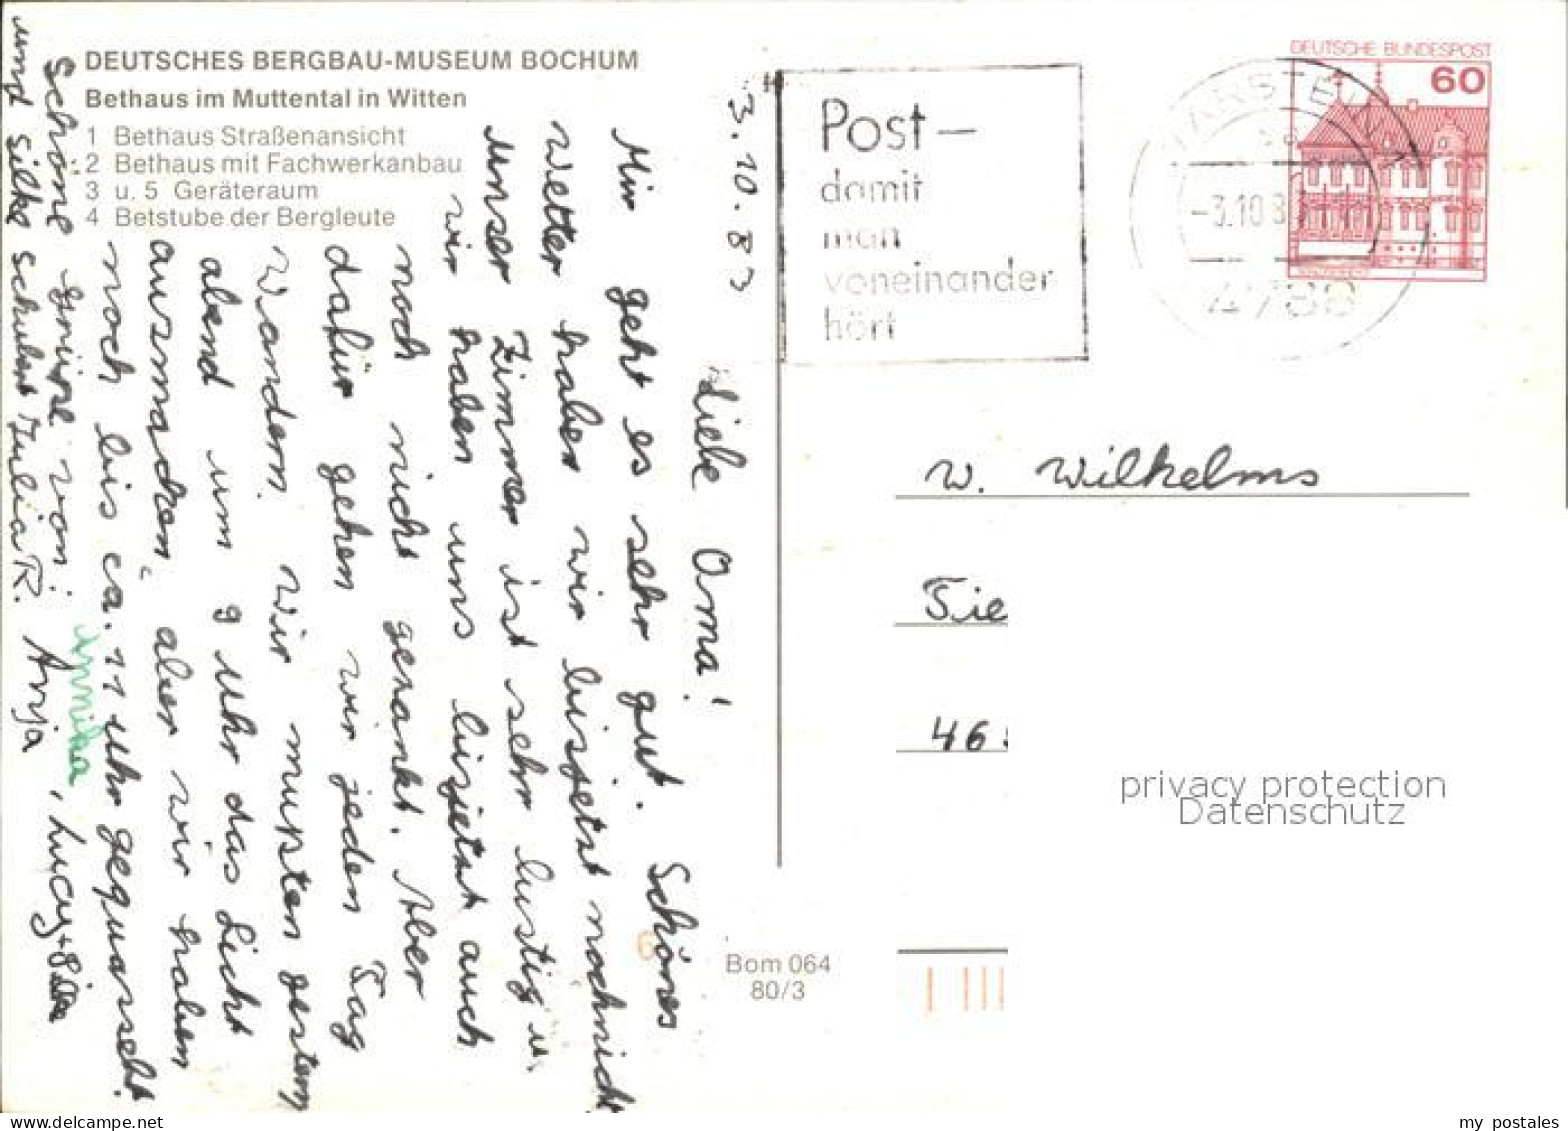 DEUTSCHES BERGBAU-MUSEUM BOCHUM
Bethaus im Muttental in Witten
1 Bethaus Straßenansicht
2 Bethaus mit Fachwerkanbau
3 u. 5 Geräteraum
4 Betstube der Bergleute
3. 10. 83
Liebe Oma!
Mir geht es sehr gut. Schönes
Wetter haben wir bisjetzt nochnicht
Unser Zimmer ist sehr lustig u.
wir haben uns bisjetzt auch
noch nicht gezankt. Aber
dafür gehen wir jeden Tag
Wandern. Wir mußten gestern
abend um 9 Uhr das Licht
ausmachen, aber wir haben
noch bis ca. 11 Uhr gequasselt.
Schöne Grüße von:
Annika, Lucy +
und Silke Schubert Julia R. Anja
Post –
damit
man
voneinander
hört
WARSTEIN 1
-3.10.8
4788
DEUTSCHE BUNDESPOST
60
W. Wilhelms
Tie
46
privacy protection
Datenschutz
Bom 064
80/3
my postales